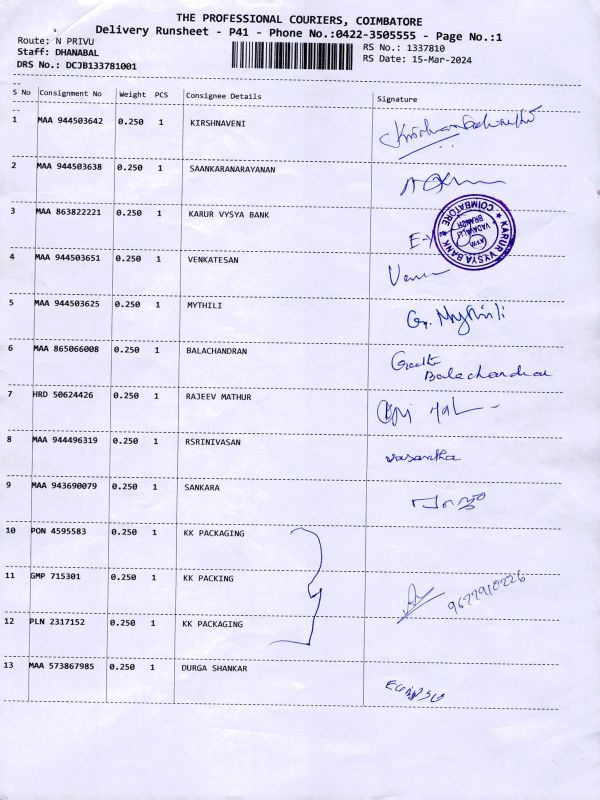 THE PROFESSIONAL COURIERS, COIMBATORE
Delivery Runsheet - P41 - Phone No.:0422-3505555 - Page No.:1
Route: N PRIVU
RS No.: 1337810
Staff: DHANABAL
RS Date: 15-Mar-2024
DRS No.: DCJB133781001
S No Consignment No Weight PCS Consignee Details Signature
1 MAA 944503642 0.250 1 KIRSHNAVENI
2 MAA 944503638 0.250 1 SAANKARANARAYANAN
3 MAA 863822221 0.250 1 KARUR VYSYA BANK
KARUR VYSYA BANK COIMBATORE VADAVALLI BRANCH
4 MAA 944503651 0.250 1 VENKATESAN
5 MAA 944503625 0.250 1 MYTHILI G. Mythili
6 MAA 865066008 0.250 1 BALACHANDRAN
Balachandran
7 HRD 50624426 0.250 1 RAJEEV MATHUR
8 MAA 944496319 0.250 1 RSRINIVASAN vasantha
9 MAA 943690079 0.250 1 SANKARA
10 PON 4595583 0.250 1 KK PACKAGING
11 GMP 715301 0.250 1 KK PACKING
12 PLN 2317152 0.250 1 KK PACKAGING
13 MAA 573867985 0.250 1 DURGA SHANKAR